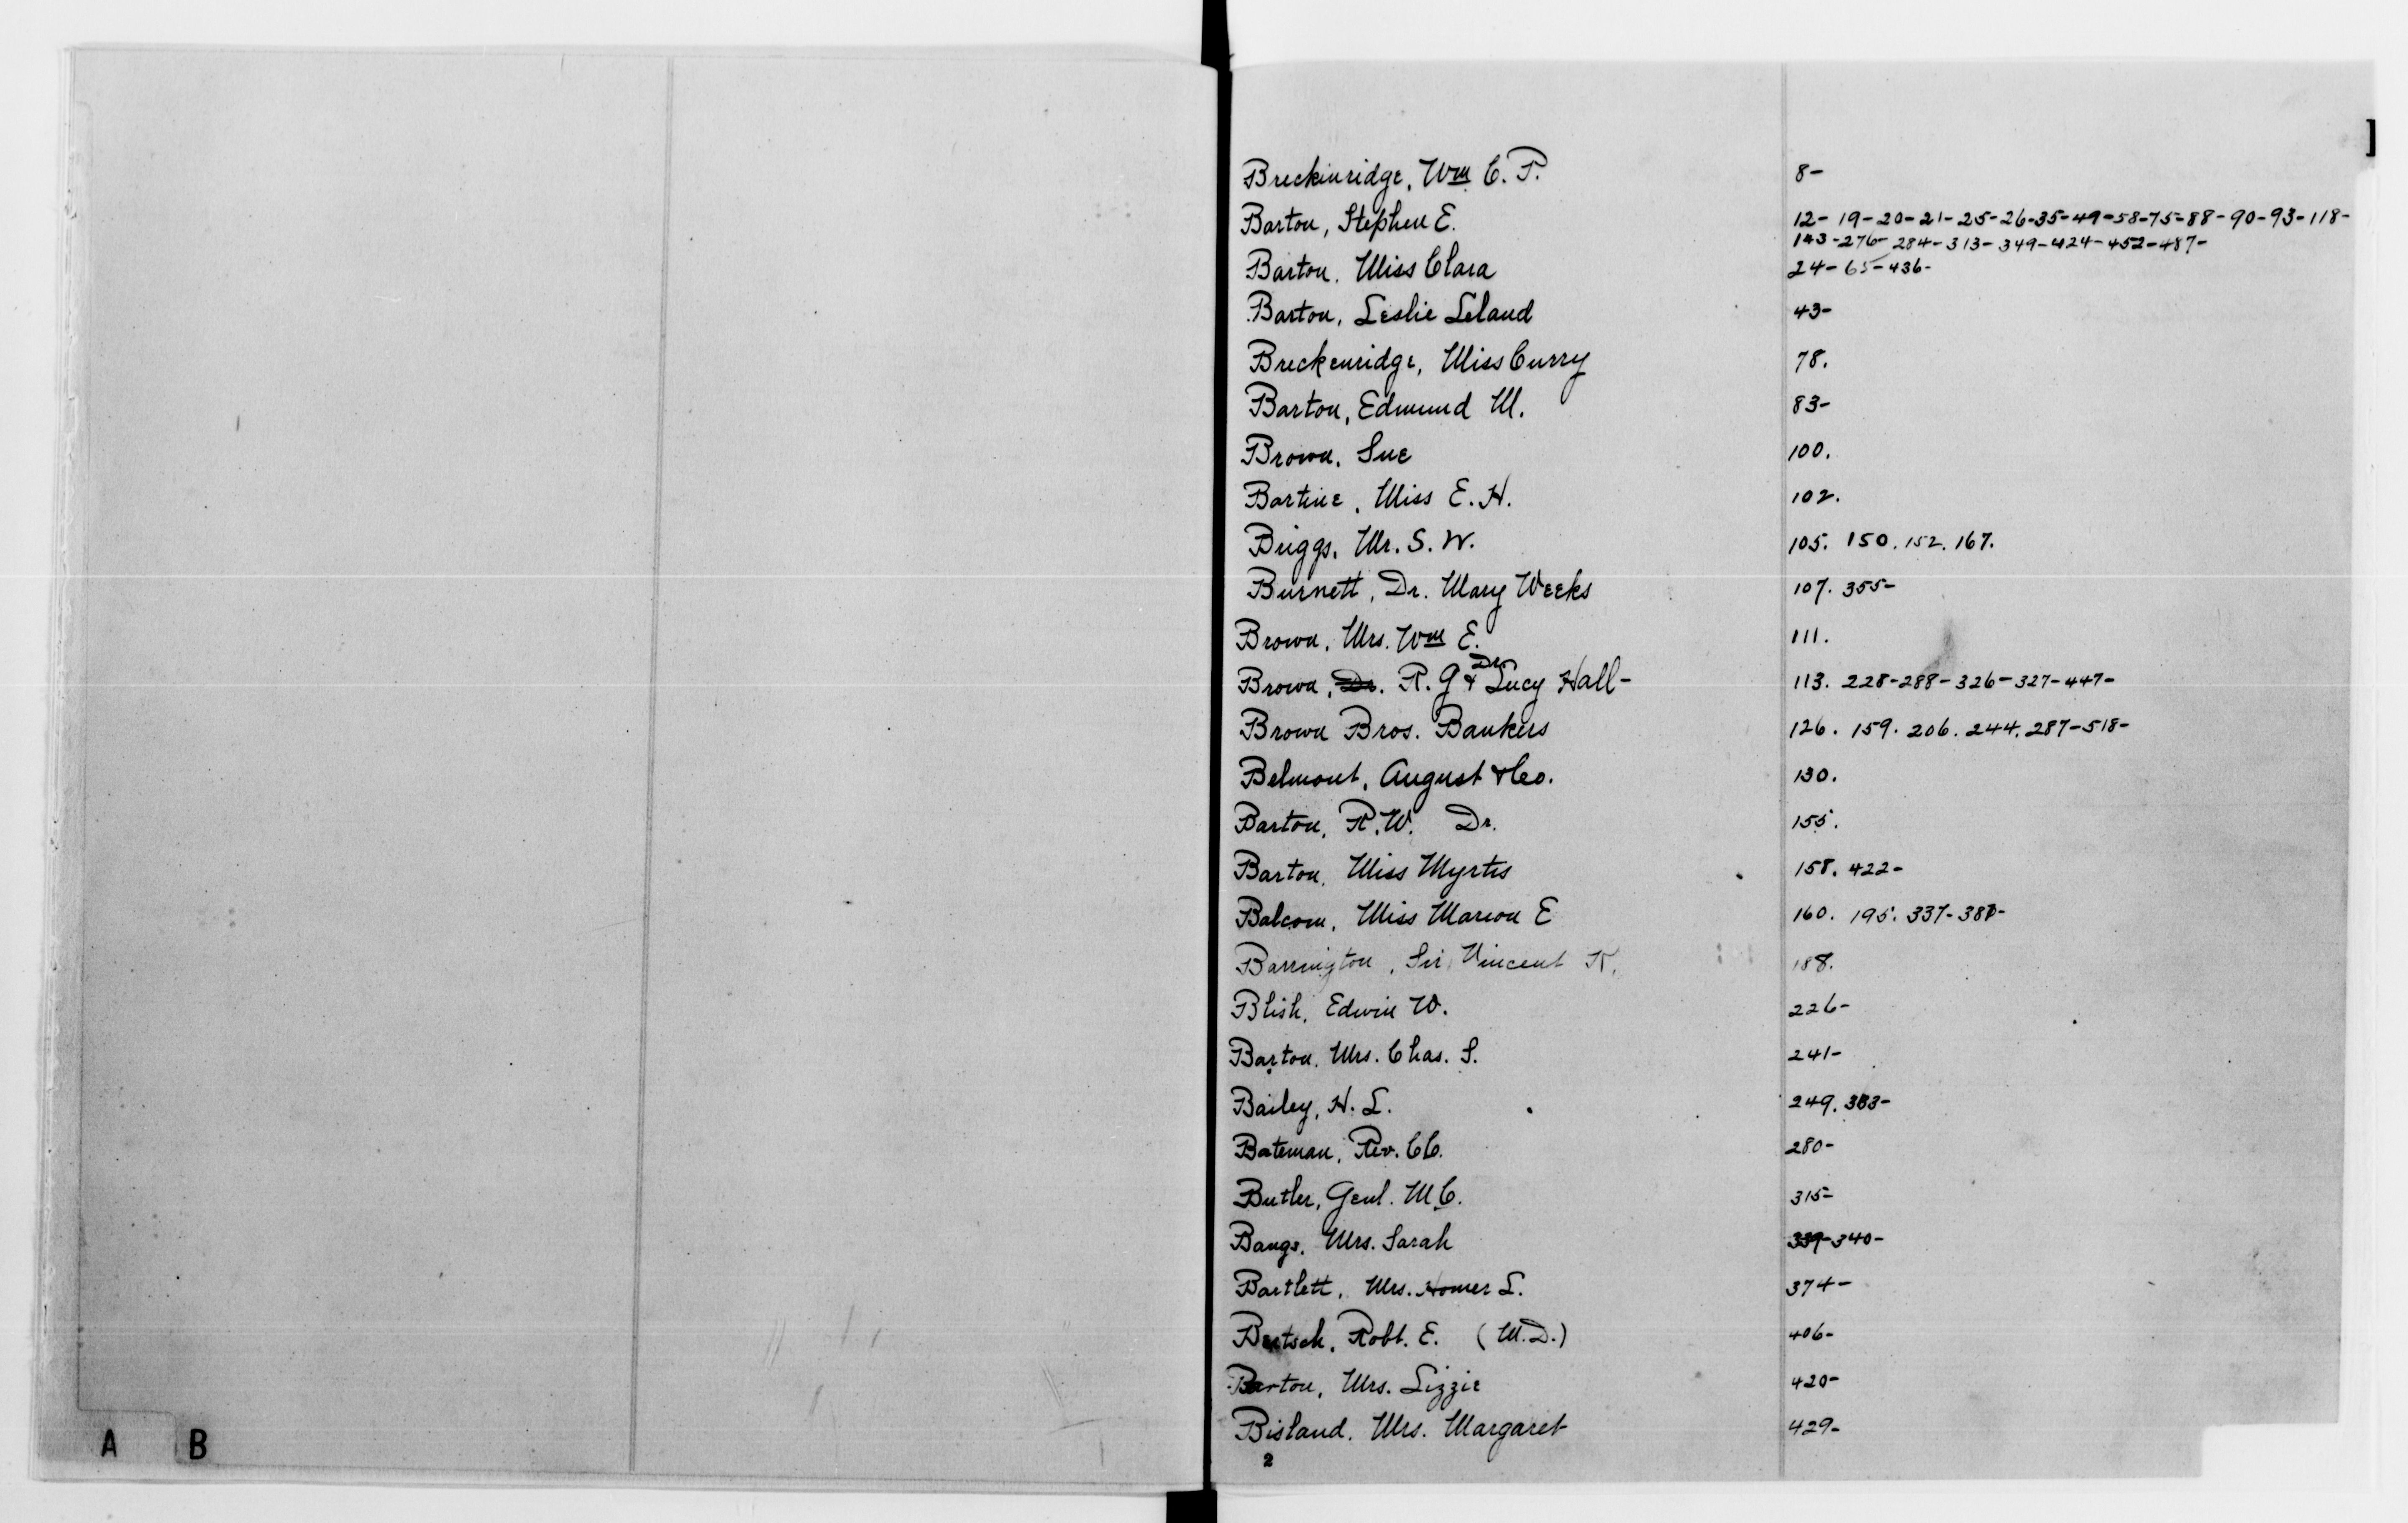 ]
Breckinridge, Wm C. P. 8-
Barton, Stephen E. 12-19-20-21-25-26-35-49-58-75-88-90-93-118-
143-276-284-313-349-424-452-487-
Barton, Miss Clara 24-65-436-
Barton, Leslie Leland 43-
Breckenridge, Miss Curry 78.
Barton, Edmund M. 83-
Brown, Sue 100.
Bartine, Miss E. H. 102.
Briggs, Mr. S. W. 105. 150. 152. 167.
Burnett, Dr. Mary Weeks 107. 355-
Brown, Mrs. Wm E. 111.
Brown, Dr. R. G & Dr Lucy Hall- 113. 228-288-326-327-447-
Brown Bros. Bankers 126. 159. 206. 244. 287-518-
Belmont, August & Co. 130.
Barton, R. W. Dr. 155.
Barton, Miss Myrtis 158. 422-
Balcom, Miss Marion E 160. 195. 337-
Barrington, Sir Vincent K. 188.
Blish, Edwin W. 226-
Barton, Mrs. Chas. S. 241-
Bailey, H. L. 249.
Bateman, Rev. C C. 280-
Butler, Genl. M C. 315-
Bangs, Mrs. Sarah 339-340-
Bartlett, Mrs. Homer L. 374-
Bertsch, Robt. E. (M.D.) 406-
Barton, Mrs. Lizzie 420-
Bisland, Mrs. Margaret 429-
2
A B